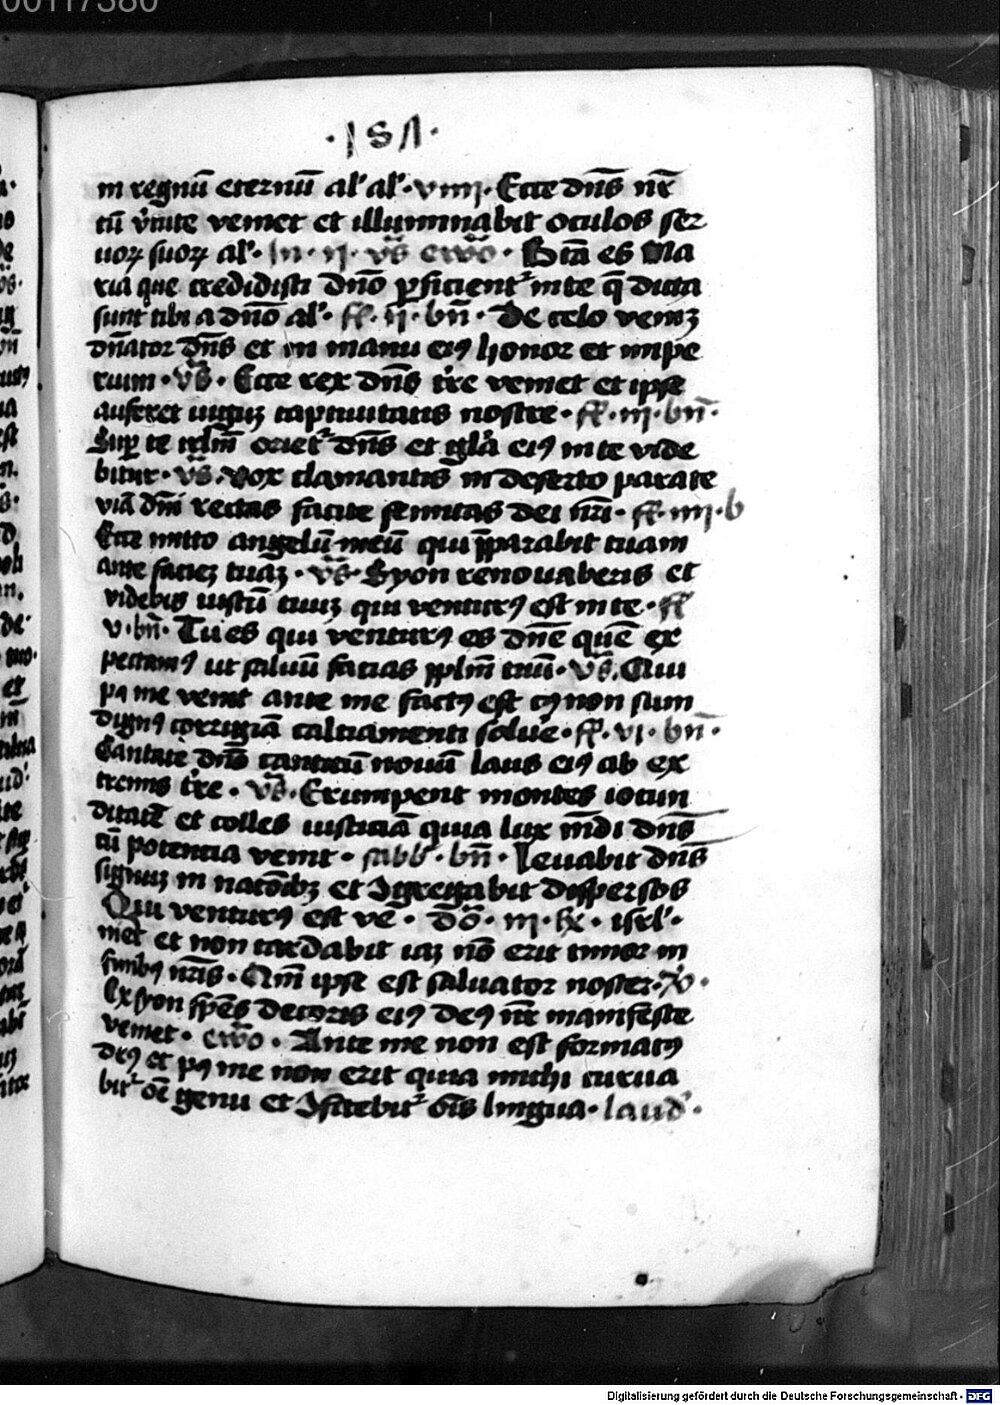 00117380
·157·
in regnū eternū al' al'· viiii· Ecce dn̄s nr̄
cū v̓tute veniet et illuminabit oculos ser
uoꝝ suoꝝ al'· In· ii· vs̄ ewō· Btā es Ma
ria que credidisti dn̄o ꝑficient᷑ in te q̄ dicta
sunt tibi a dn̄o al'· ff· ii· bn̄· De celo veniꝫ
dn̄ator dn̄s et in manu eiꝰ honor et impe
rium· vs̄· Ecce rex dn̄s t̓re veniet et ipse
auferet iuguꝫ captiuitatis nostre· ff· iii· bn̄·
Suꝑ te irl̄m oriet᷑ dn̄s et gl̓a eiꝰ in te vide
bitur· vs̄· vox clamantis in deserto parate
viā dn̄i rectas facite semitas dei nr̄i· ff· iiii· b
Ecce mitto angelū meū qui p̄parabit tuam
ante facieꝫ tuaꝫ· vs̄· Syon renouaberis et
videbis iustū tuuꝫ qui venturꝰ est in te· ff
v· bn̄· Tu es qui venturꝰ es dn̄e quē ex
pectamꝰ ut saluū facias ppl̄m tuū· vs̄· Qui
pꝰ me venit ante me factꝰ est cꝰ non sum
dignꝰ corrigiā calciamenti solue̓· ff· vi· bn̄·
Cantate dn̄o canticū nouū laus eiꝰ ab ex
tremis t̓re· vs̄· Erumpent montes iocun
ditatē et colles iusticiā quia lux mūdi dn̄s
cū potencia venit· sabb'· bn̄· Leuabit dn̄s
signuꝫ in nacōibꝫ et ꝯgregabit dispersos
Qui venturꝰ est ve· dō· iii· hx· isrl'·
niet et non tardabit iaꝫ nō erit timor in
finibꝰ nr̄is· Qm̄ ipse est saluator noster· ·
Ex syon spēs decoris eiꝰ deꝰ nr̄ manifeste
veniet· ewō· Ante me non est formatꝰ
deꝰ et pꝰ me non erit quia michi curua
bit᷑ oē genu et ꝯfitebit᷑ oīs lingua· laud'·
Digitalisierung gefördert durch die Deutsche Forschungsgemeinschaft · DFG